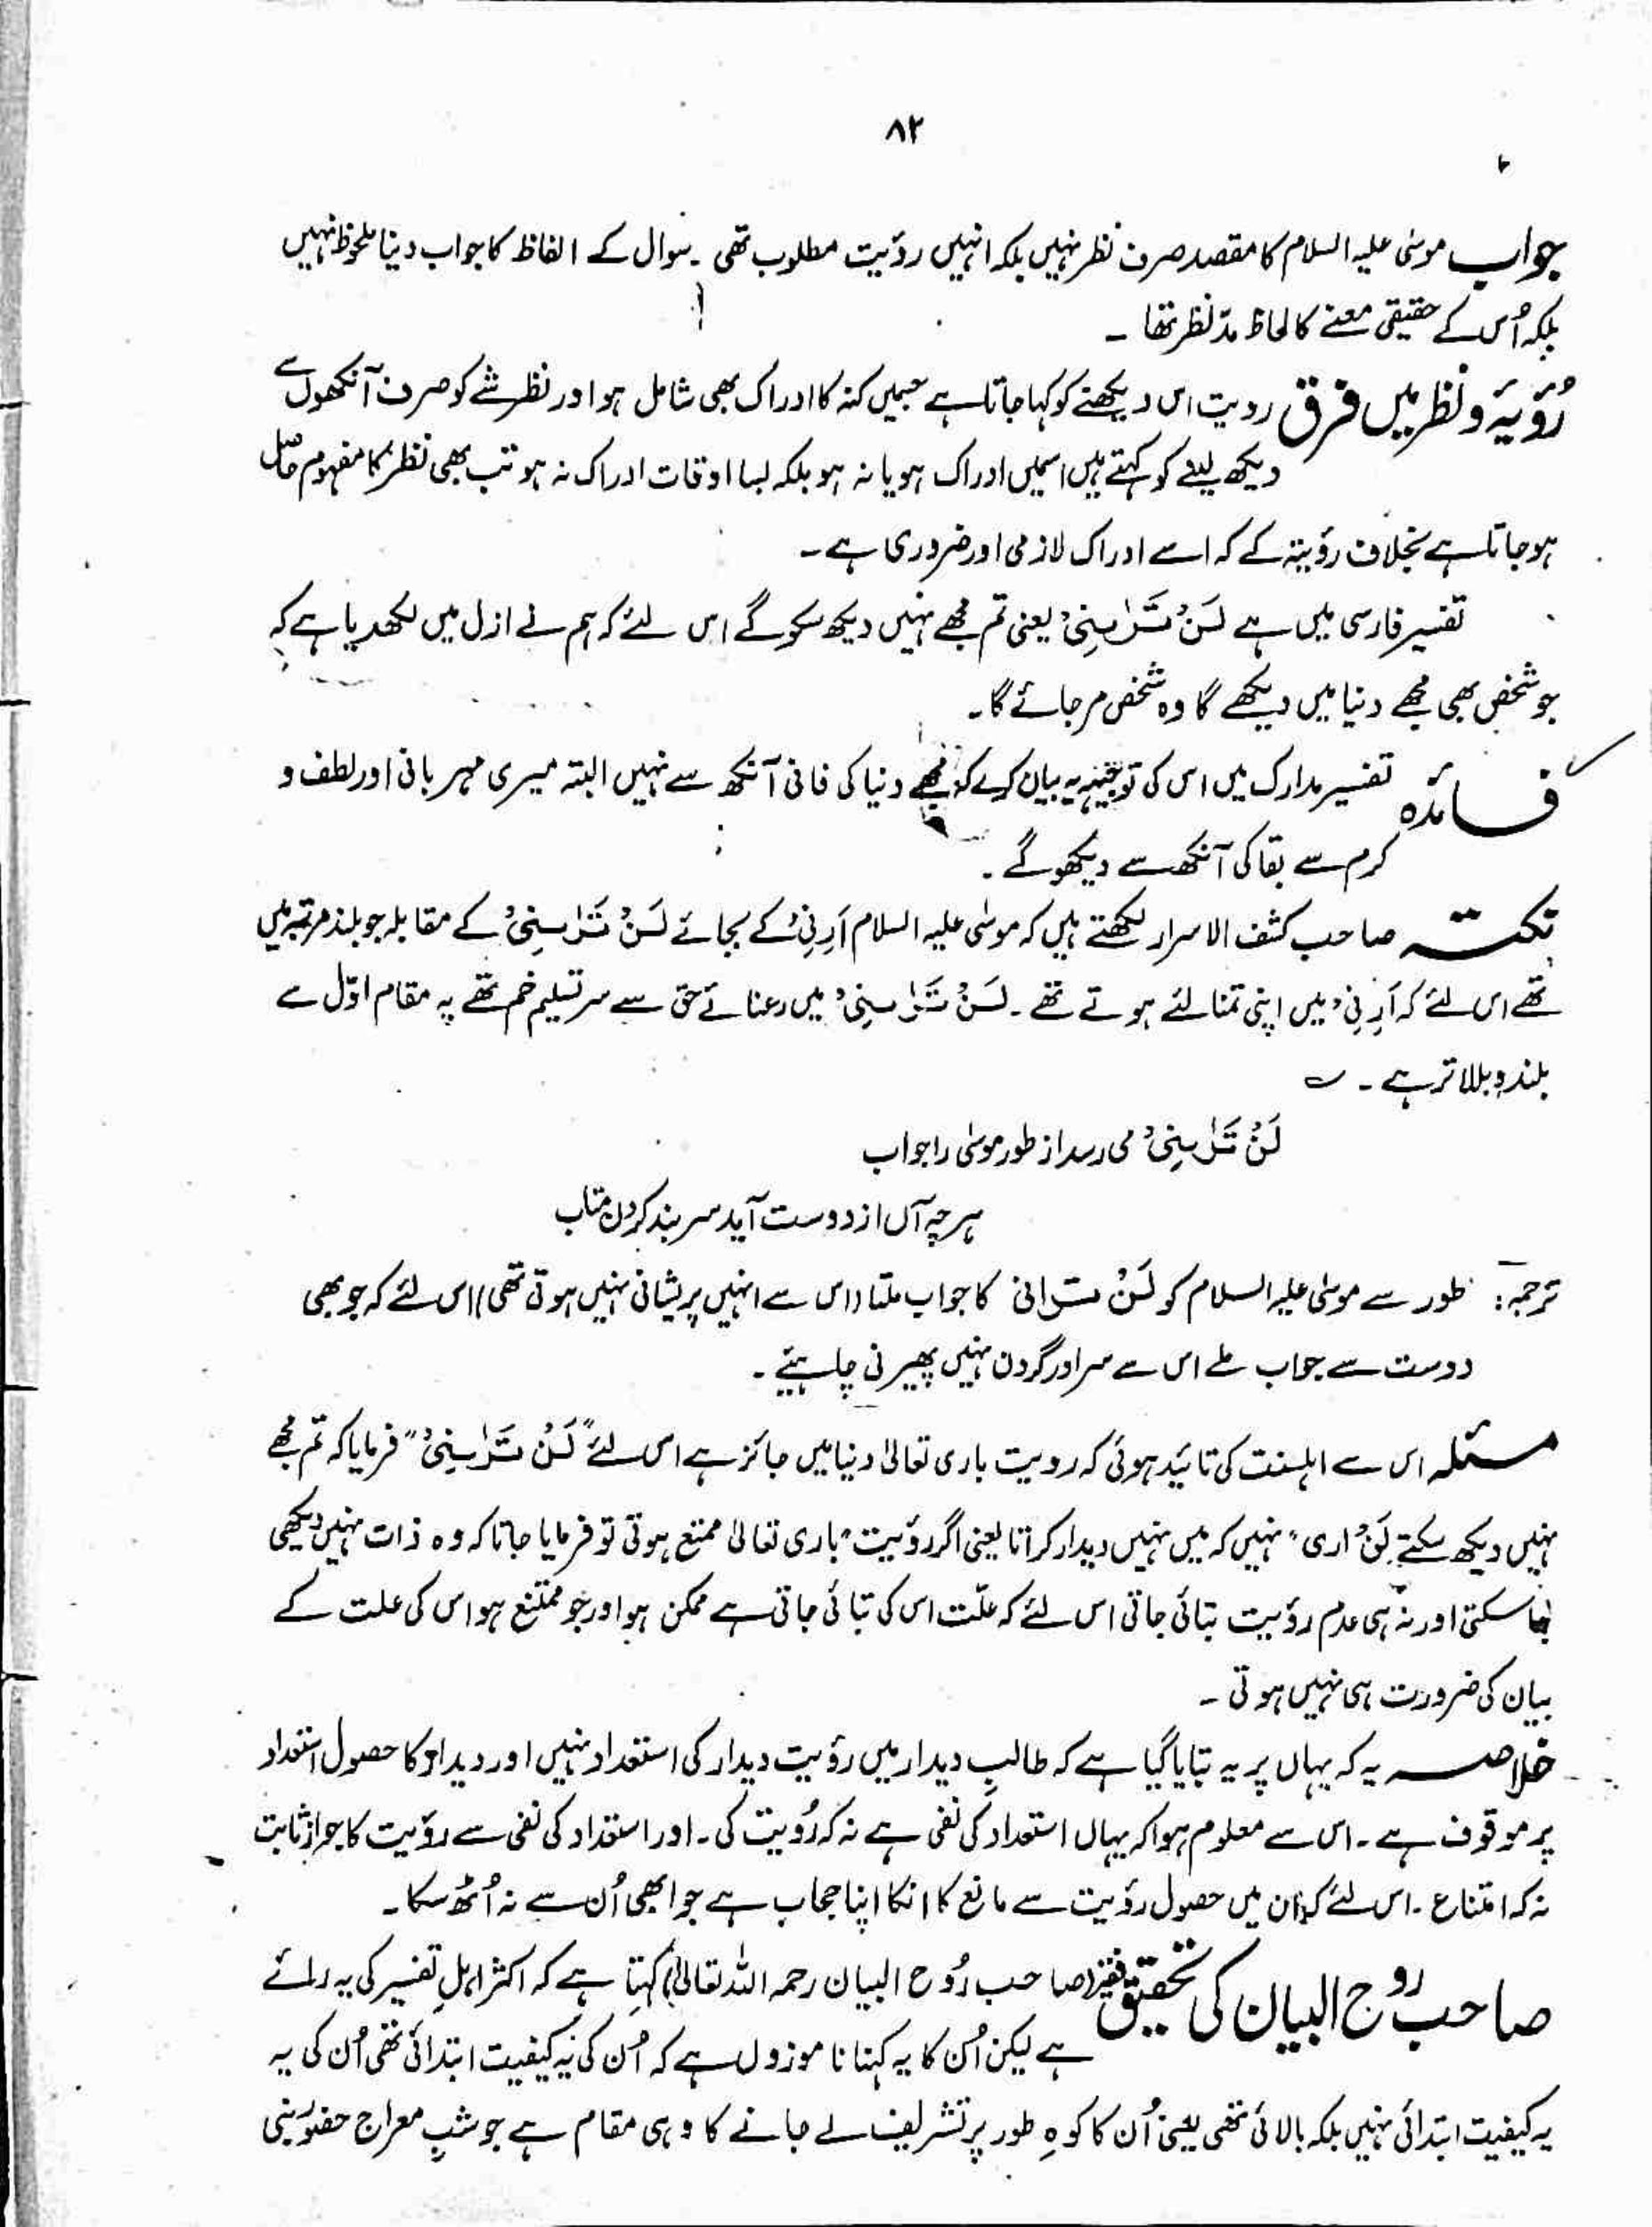 ۸۲
جواب موسیٰ علیہ السلام کا مقصد صرف نظر نہیں بلکہ انہیں رؤیت مطلوب تھی ۔ سوال کے الفاظ کا جواب دینا ملحوظ نہیں
بلکہ اُس کے حقیقی معنے کا لحاظ مدّ نظر تھا ۔
رُؤیۃ و نظر میں فرق رویت اس دیکھنے کو کہا جاتا ہے جسمیں کنہ کا ادراک بھی شامل ہو اور نظر شے کو صرف آنکھوں سے
دیکھ لینے کو کہتے ہیں اسمیں ادراک ہو یا نہ ہو بلکہ بسا اوقات ادراک نہ ہو تب بھی نظر کا مفہوم حاصل
ہو جاتا ہے بخلاف رؤیتہ کے کہ اسے ادراک لازمی اور ضروری ہے ۔
تفسیر فارسی میں ہے لَنْ تَرٰىنِیْ یعنی تم مجھے نہیں دیکھ سکو گے اس لئے کہ ہم نے ازل میں لکھدیا ہے کہ
جو شخص بھی مجھے دنیا میں دیکھے گا وہ شخص مر جائے گا ۔
فائدہ تفسیر مدارک میں اس کی توجیہہ یہ بیان کی کہ مجھے دنیا کی فانی آنکھ سے نہیں البتہ میری مہربانی اور لطف و
کرم سے بقا کی آنکھ سے دیکھو گے ۔
نکتہ صاحب کشف الاسرار لکھتے ہیں کہ موسٰی علیہ السلام اَرِنِیْ کے بجائے لَنْ تَرٰىنِیْ کے مقابلہ جو بلند مرتبہ میں
تھے اس لئے کہ اَرِنِیْ میں اپنی تمنا لئے ہوتے تھے ۔ لَنْ تَرٰىنِیْ میں رضائے حق سے سر تسلیم خم تھے یہ مقام اوّل سے
بلند و بالا تر ہے ۔ ؎
لَنْ تَرٰىنِیْ می رسد از طور موسیٰ را جواب
ہر چہ آں از دوست آید سر بند گردن متاب
ترجمہ : طور سے موسیٰ علیہ السلام کو لَنْ ترانی کا جواب ملتا (اس سے انہیں پریشانی نہیں ہوتی تھی) اس لئے کہ جو بھی
دوست سے جواب ملے اس سے سر اور گردن نہیں پھیرنی چاہیئے ۔
مسئلہ اس سے اہلسنت کی تائید ہوئی کہ رویت باری تعالیٰ دنیا میں جائز ہے اس لئے "لَنْ تَرٰىنِیْ" فرمایا کہ تم مجھے
نہیں دیکھ سکتے لَنْ اری " نہیں کہ میں نہیں دیدار کراتا یعنی اگر رؤیت باری تعالیٰ ممتنع ہوتی تو فرمایا جاتا کہ وہ ذات نہیں دیکھی
جا سکتی اور نہ ہی عدم رؤیت بتائی جاتی اس لئے کہ علّت اس کی بتائی جاتی ہے ممکن ہو اور جو ممتنع ہو اس کی علت کے
بیان کی ضرورت ہی نہیں ہوتی ۔
خلاصہ یہ کہ یہاں پر یہ بتایا گیا ہے کہ طالب دیدار میں رؤیت دیدار کی استعداد نہیں اور دیدار کا حصول استعداد
پر موقوف ہے ۔ اس سے معلوم ہوا کہ یہاں استعداد کی نفی ہے نہ کہ رُویت کی ۔ اور استعداد کی نفی سے رؤیت کا جواز ثابت
نہ کہ امتناع ۔ اس لئے کہ ان میں حصول رؤیت سے مانع کا انکا اپنا حجاب ہے جو ابھی اُن سے نہ اُٹھ سکا ۔
صاحب روح البیان کی تحقیق فقیر (صاحب رُوح البیان رحمہ اللہ تعالیٰ) کہتا ہے کہ اکثر اہلِ تفسیر کی یہ رائے
ہے لیکن اُن کا یہ کہنا نا موزوں ہے کہ اُن کی یہ کیفیت ابتدائی تھی اُن کی یہ
یہ کیفیت ابتدائی نہیں بلکہ بالائی تھی یعنی اُن کا کوہِ طور پر تشریف لے جانے کا وہی مقام ہے جو شبِ معراج حضور نبی